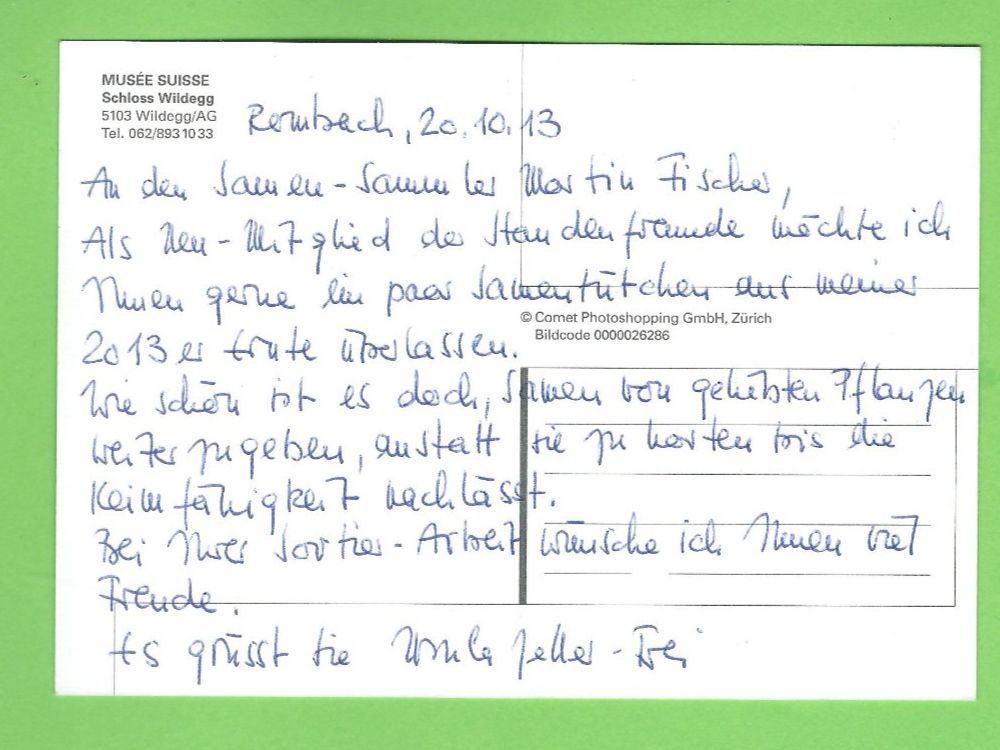 MUSÉE SUISSE
Schloss Wildegg
5103 Wildegg/AG
Tel. 062/893 10 33
Rombach, 20.10.13
An den Samen-Sammler Martin Fischer,
Als Neu-Mitglied der Staudenfreunde möchte ich
Ihnen gerne ein paar Samentütchen aus meiner
2013er Ernte überlassen.
© Comet Photoshopping GmbH, Zürich
Bildcode 0000026286
Wie schön ist es doch, Samen von geliebten Pflanzen
weiterzugeben, anstatt sie zu horten bis die
Keimfähigkeit nachlässt.
Bei Ihrer Sortier-Arbeit wünsche ich Ihnen viel
Freude.
Es grüsst Sie Ursula Zeller-Frei